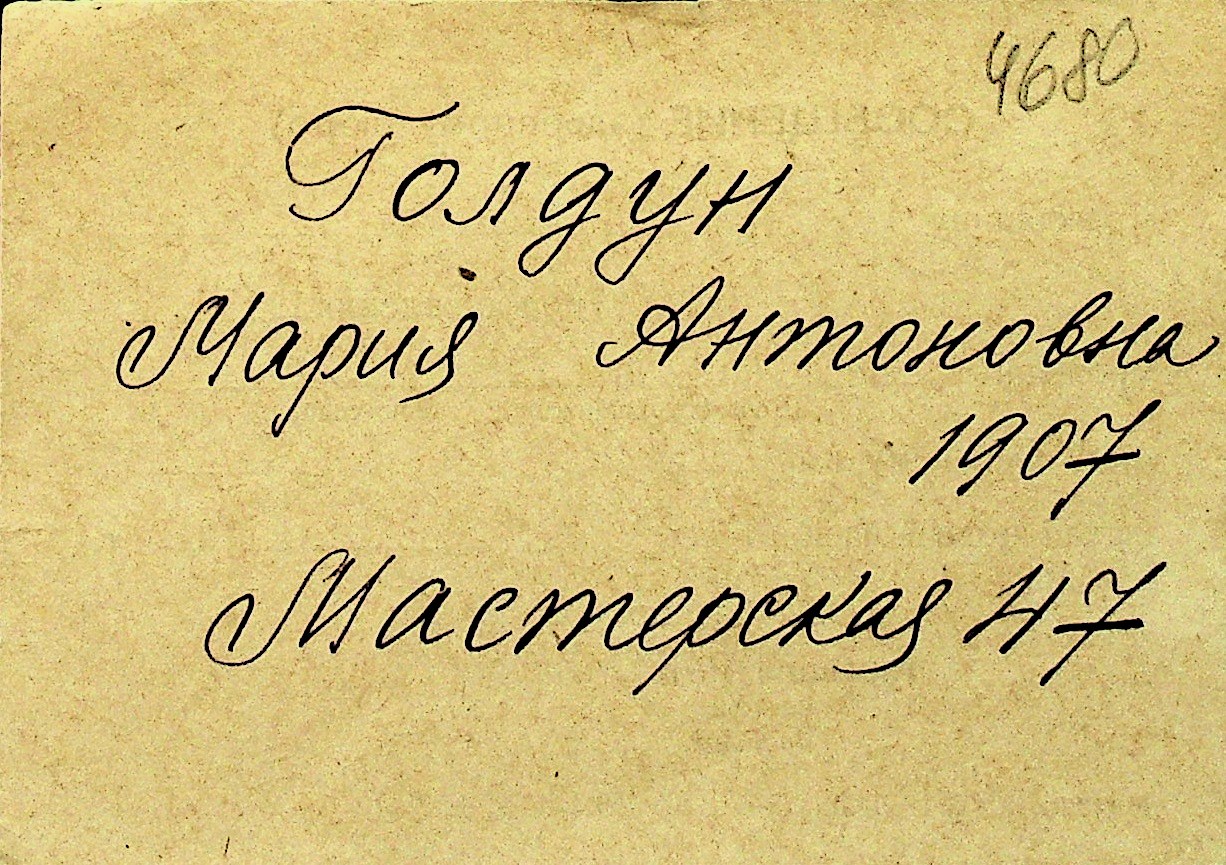 4680
Голдун
Мария Антоновна
1907
Мастерская 47